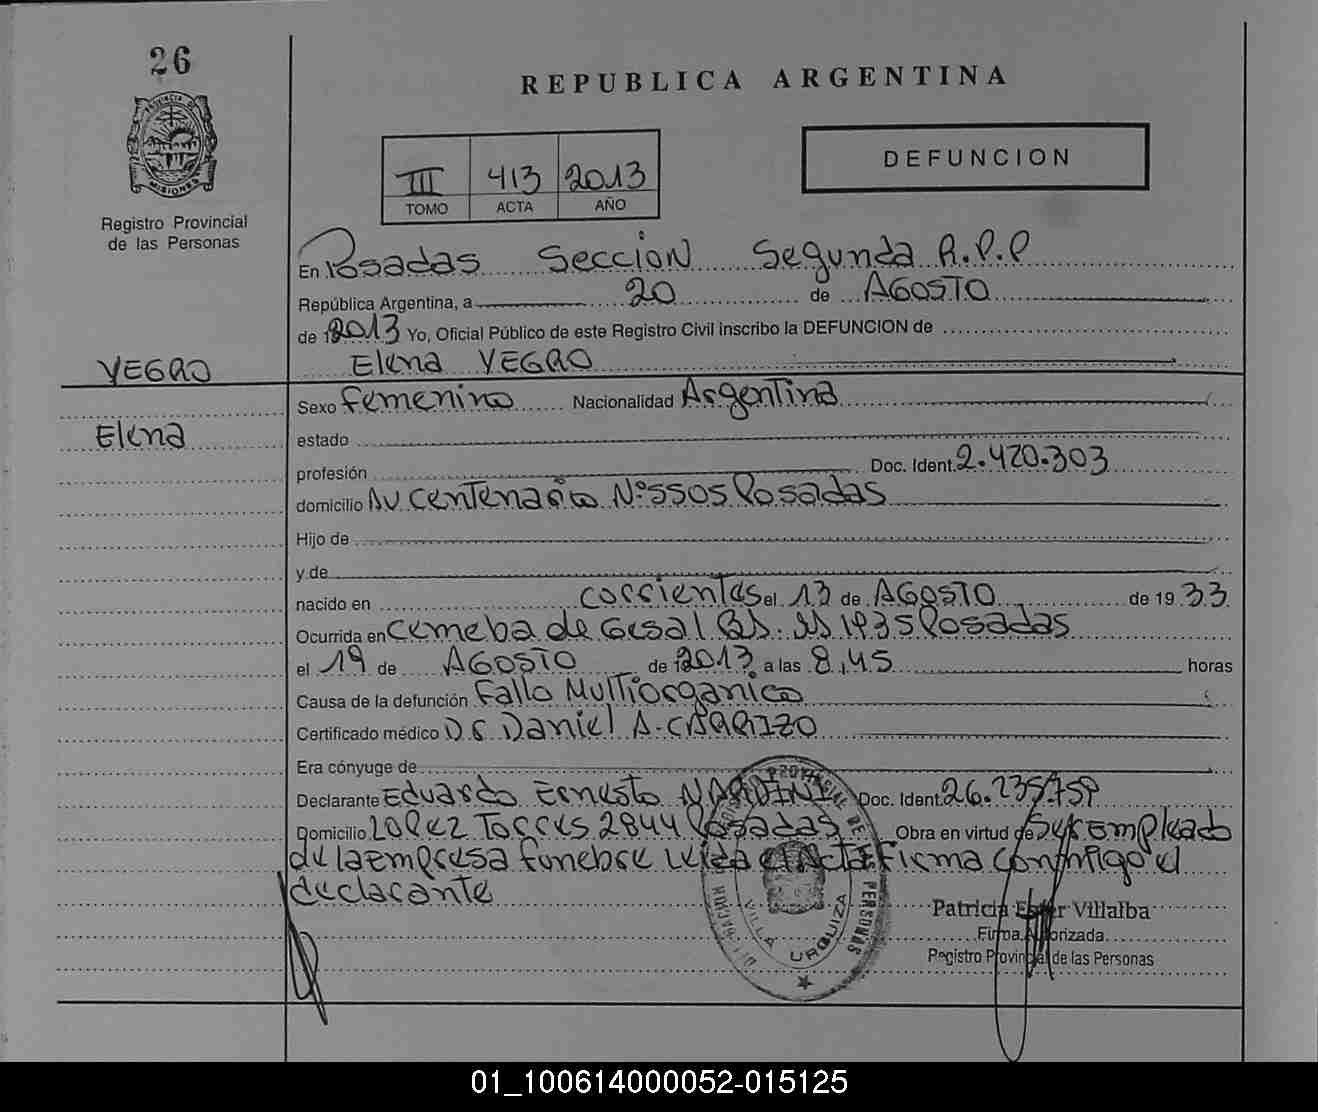 26
REPUBLICA ARGENTINA
PROVINCIA DE
MISIONES
Registro Provincial
de las Personas
III 413 2013
TOMO ACTA AÑO
DEFUNCION
En Posadas Seccion Segunda R.P.P
República Argentina, a 20 de AGOSTO
de 2013 Yo, Oficial Público de este Registro Civil inscribo la DEFUNCION de
YEGRO
Elena YEGRO
Elena
Sexo Femenino Nacionalidad Argentina
estado
profesión Doc. Ident. 2.420.303
domicilio AV Centenario Nº 5505 Posadas
Hijo de
y de
nacido en Corrientes el 13 de AGOSTO de 1933
Ocurrida en Cemeba de Gesal BS. SS 1935 Posadas
el 19 de AGOSTO de 2013 a las 8,45 horas
Causa de la defunción Fallo Multiorganico
Certificado médico Dr Daniel A. CARRIZO
Era cónyuge de
Declarante Eduardo Ernesto NARDINI Doc. Ident. 26.235.759
Domicilio LOPEZ Torres 2844 Posadas Obra en virtud de Ser Empleado
de la Empresa funebre leida el Acta Firma Conmigo el
declarante
PROVINCIAL DE LAS PERSONAS
VILLA URQUIZA
Patricia Ester Villalba
Firma Autorizada
Registro Provincial de las Personas
01_100614000052-015125